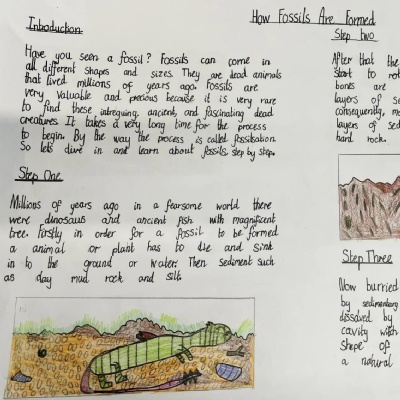 How Fossils Are Formed
Introduction
Have you seen a fossil? Fossils can come in
all different shapes and sizes. They are dead animals
that lived millions of years ago. Fossils are
very valuable and precious because it is very rare
to find these intreguing, ancient, and fascinating dead
creatures. It takes a very long time for the process
to begin. By the way the process is called fossilisation.
So lets dive in and learn about fossils step by step.
Step One
Millions of years ago in a fearsome world there
were dinosaus and ancient fish with magnificent
tree. Firstly in order for a fossil to be formed
a animal or plant has to die and sink
in to the ground or water. Then sediment such
as clay mud rock and silt.
Step two
After that the
start to rot
bones are
layers of se
consequently, mo
layers of sed
hard rock.
Step Three
Now burried
by sedimentary
dissolved by
cavity with
shape of
a natural